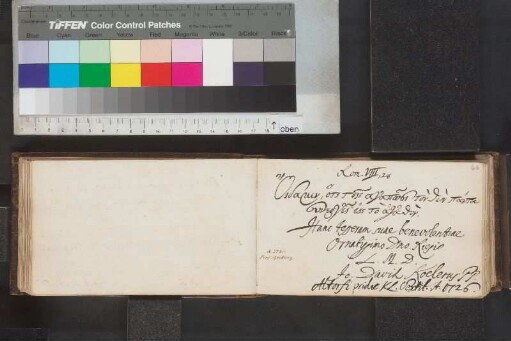 TIFFEN Color Control Patches
Blue Cyan Green Yellow Red Magenta White 3/Color Black
oben
Rom. VIII, 28
Οἴδαμεν, ὅτι τοῖς ἀγαπῶσι τὸν θεὸν πάντα
συνεργεῖ εἰς τὸ ἀγαθόν.
Hanc tesseram suae benevolentiae
Ornatissimo Dno.
L. M. D.
Jo. David Koelerus PP.
Altorfi pridie Kl. A. 1726